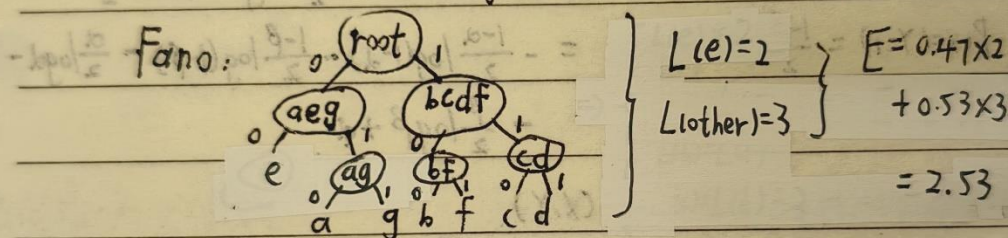 Fano:
root
0 1
aeg bcdf
0 1 0 1
e ag bf cd
0 1 0 1 0 1
a g b f c d
L(e)=2
L(other)=3
E=0.47×2
+0.53×3
=2.53